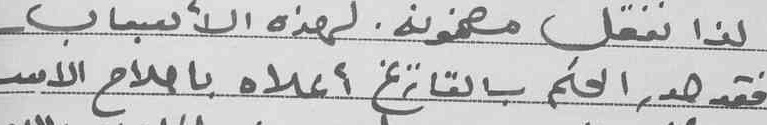 لذا تنقل مضمونه. لهذه الأسباب
فقد صدر الحكم بالتاريخ أعلاه باصلاح الاسـ